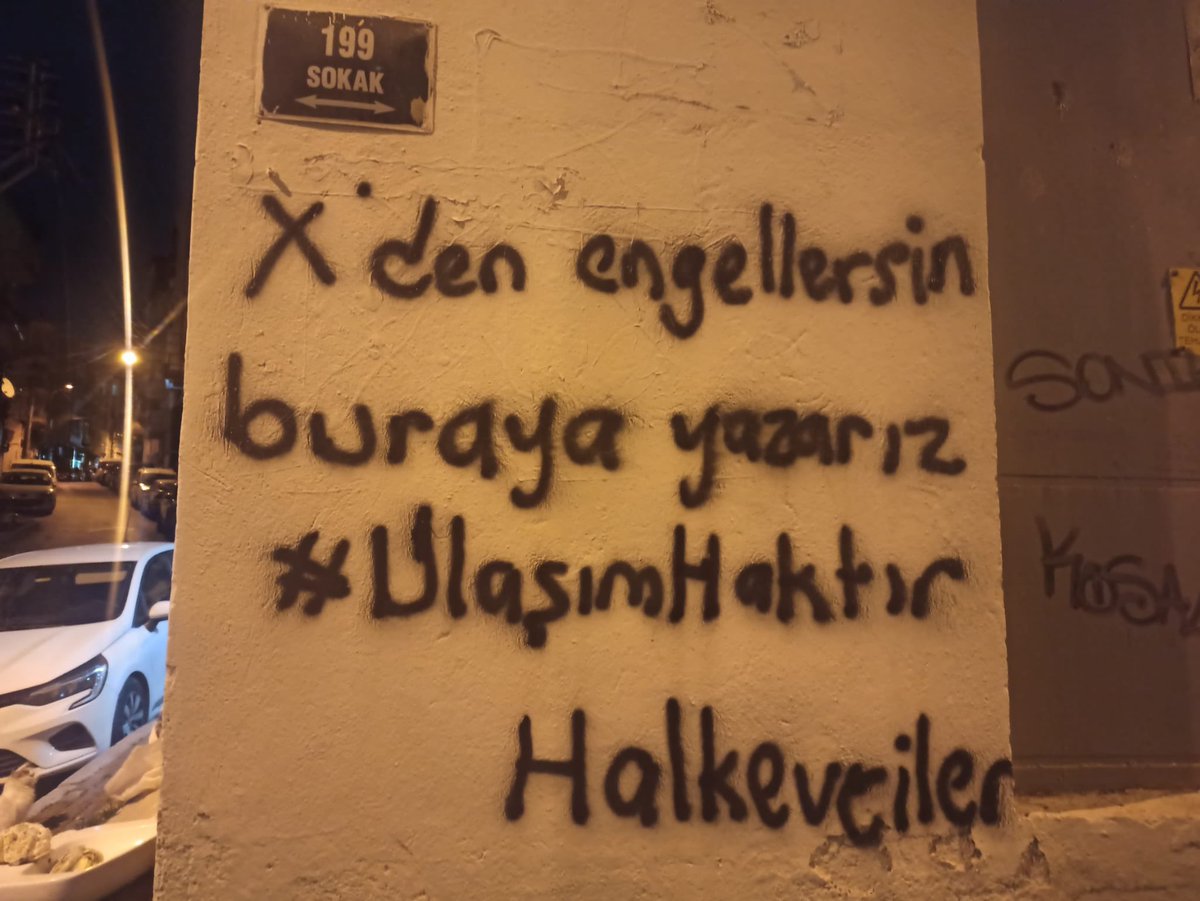 199
SOKAK
X'den engellersin
buraya yazarız
#UlaşımHaktır
Halkevçiler